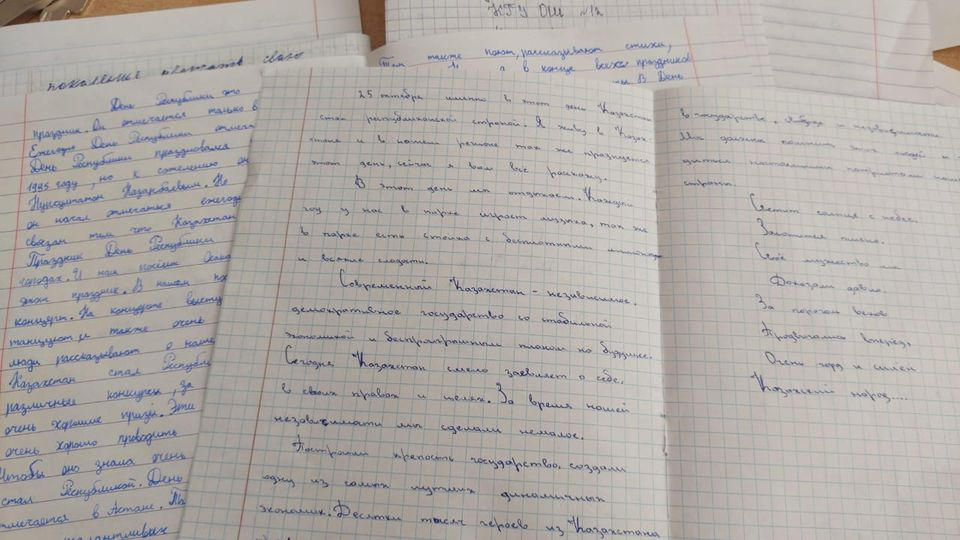 КГУ ОШ №12
поколение
Там также поют, рассказывают стихи,
и в конце всех праздников
В День
День Республики это
праздник. Он отмечается только в
Ежегодно День Республики отмеча
День Республики праздновался
1995 году, но к сожалению он
Нурсултаном Назарбаевым. Но
он начал отмечаться ежегодно
связан тем что Казахстан
Праздник День Республики
городах. И наш посёлок
этот праздник. В нашем
концерты. На концерте высту
танцуют и также очень
люди рассказывают о наше
Казахстан стал Республи
различные конкурсы, за
очень хорошие призы. Эти
очень хорошо проводить
Чтобы оно знала очень
стал Республикой. День
отмечается в Астане. Та
талантливых
25 октября именно в этот день Казахстан
стал республиканской страной. Я живу в Казах
стане и в нашем регионе так же празднуется
этот день, сейчас я вам всё расскажу.
В этот день мы отдыхаем. Каждый
год у нас в парке играет музыка, так же
в парке есть столика с бесплатными
и всякие сладости.
Современный Казахстан - независимое,
демократичное государство со стабильной
экономикой и беспроигрышным планом на будущее.
Сегодня Казахстан смело заявляет о себе,
в своих правах и целях. За время нашей
независимости мы сделали немалое.
Построили крепость государство, создали
одну из самых динамичных
экономик. Десятки тысяч героев из Казахстана
в государстве,
Мы должны помнить этих людей и
настоящими патриотами наше
страны.
Светит солнце с небес.
Золотится пшено.
Своё мужество мы
Доказали давно.
За порогом веков
Продвигаясь вперёд,
Очень горд и силён
Казахский народ....